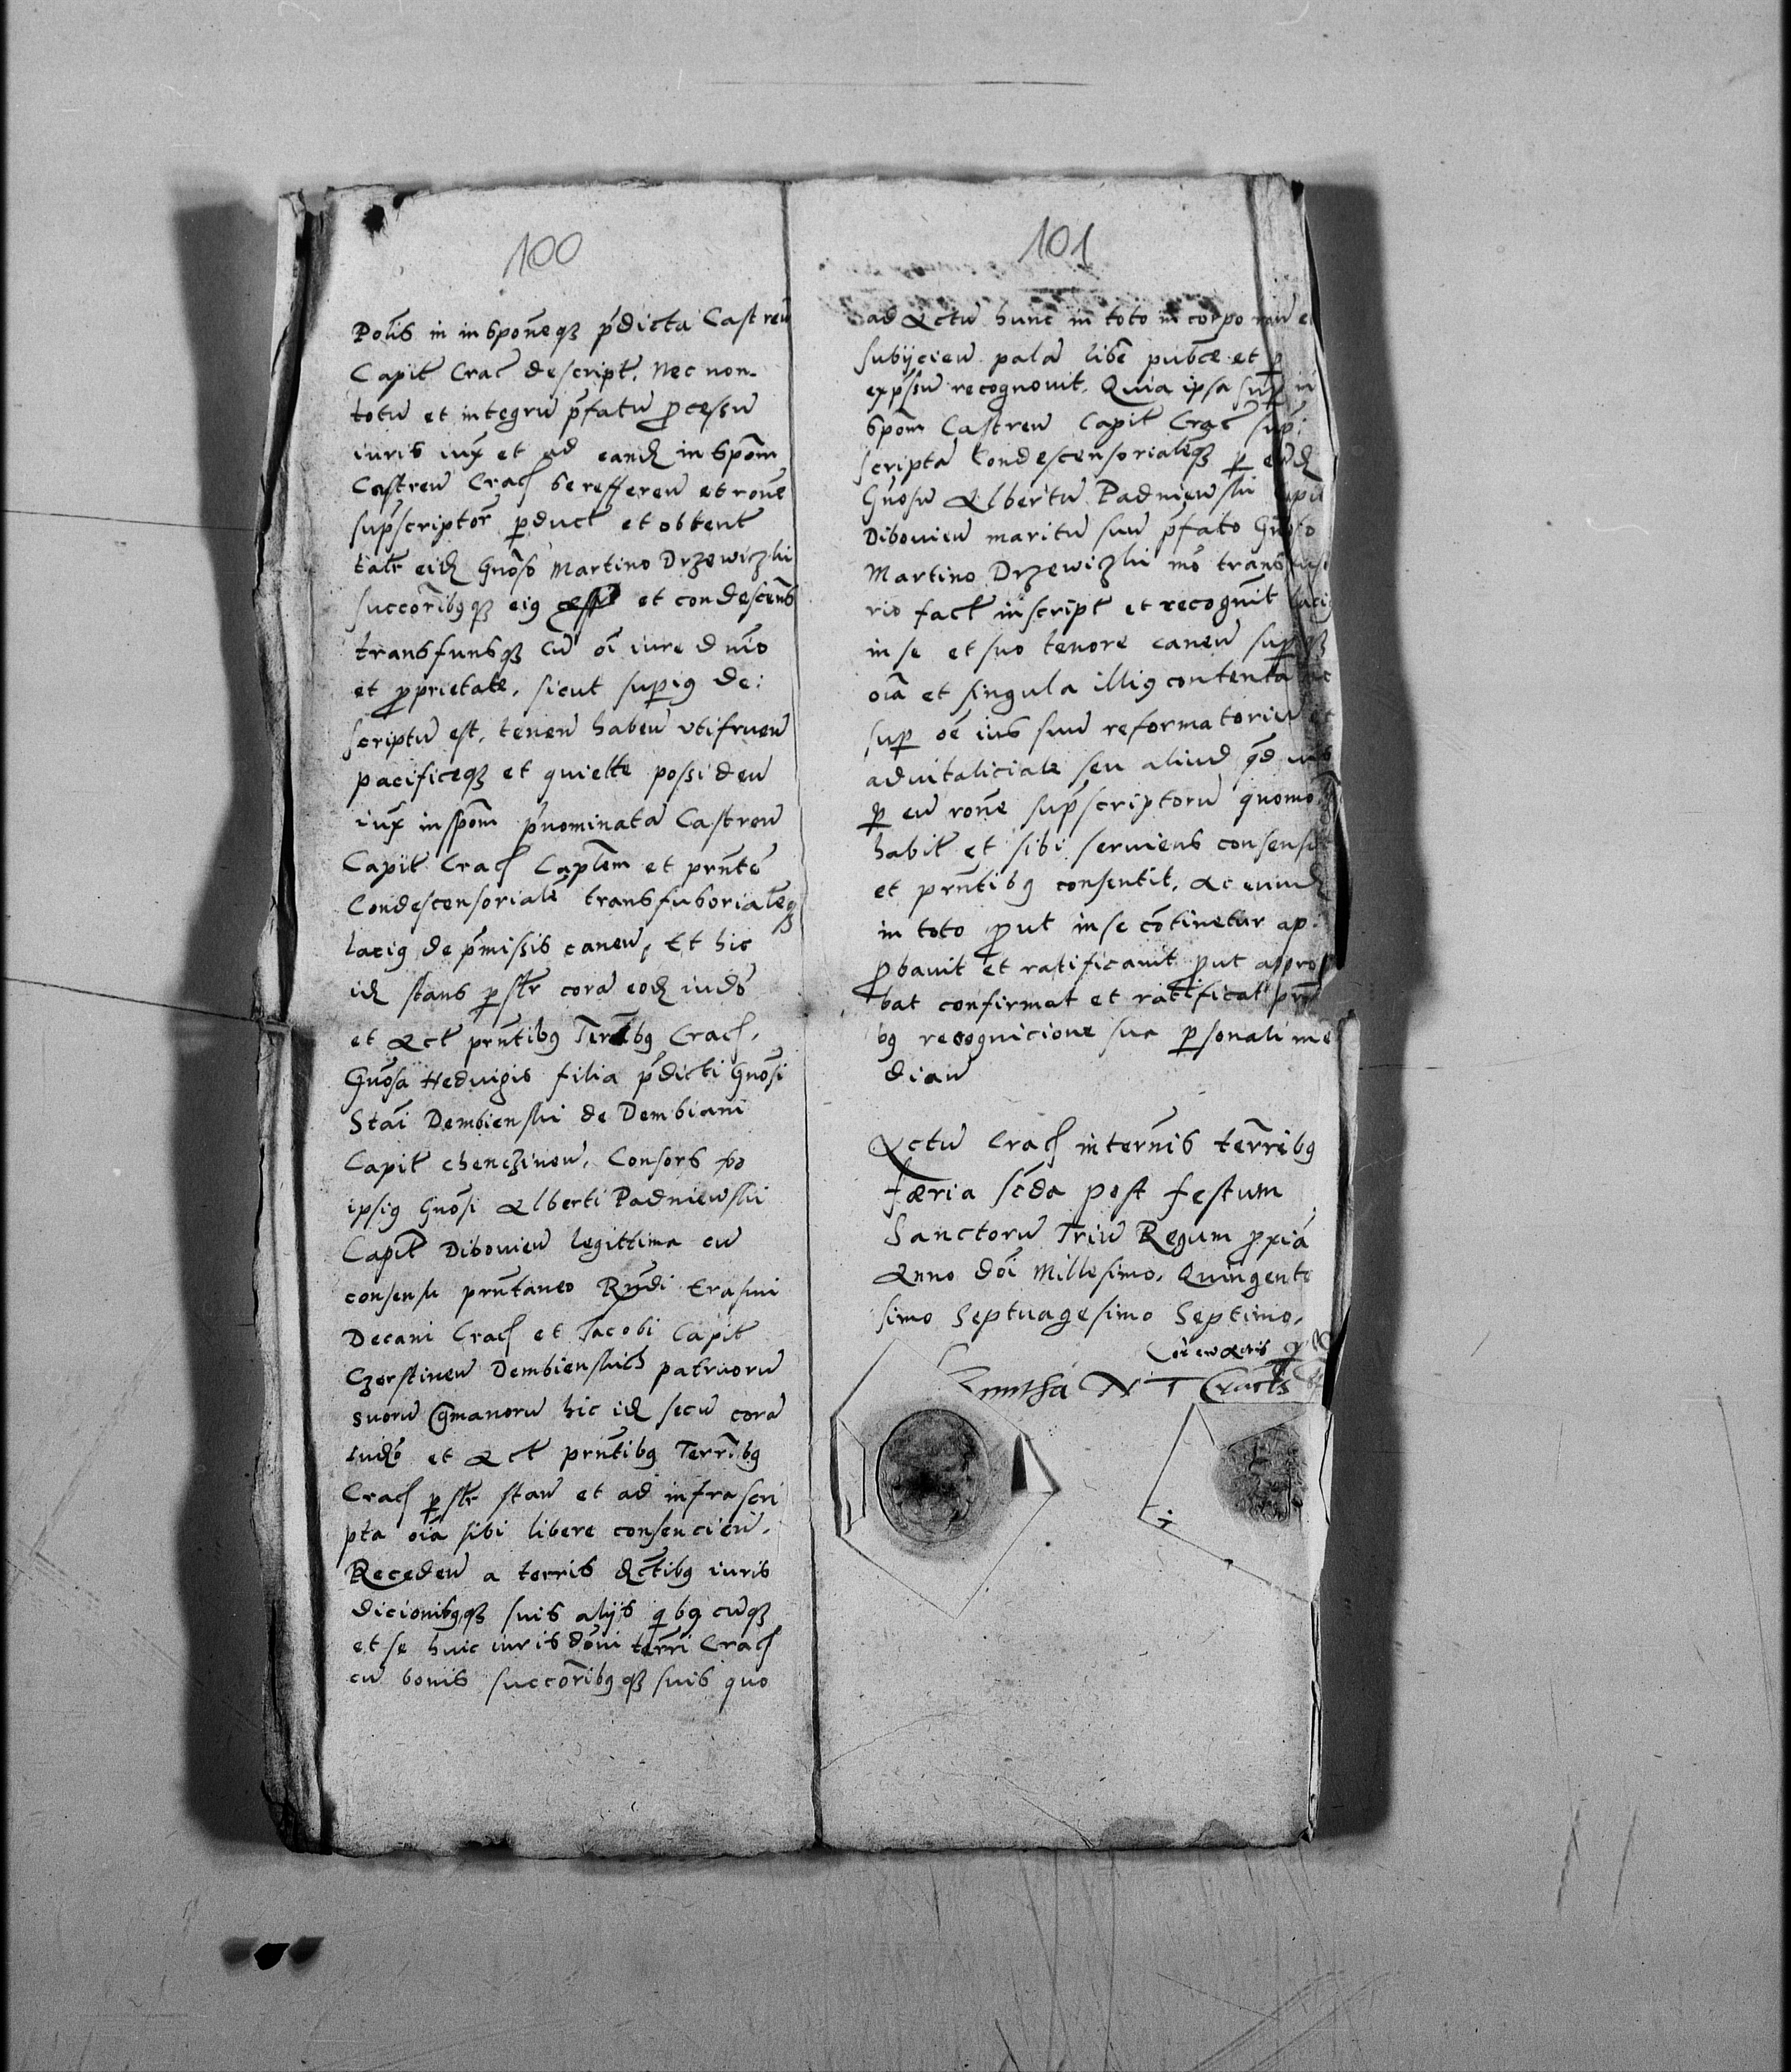 100
Polis in inspōneqꝫ p̄dicta Castreñ
Capit Crac̄ descript. Nec non
totū et integrū p̄fatū ꝓcessū
iuris iux et ad eand inspōm
Castreñ Crac sereffereñ et rōne
sup̄scriptor ꝑduct et obtent
taliter eid Gnōso Martino Drzewiczki
succōribusqꝫ eius et condescens
transfunsqꝫ cū oī iure dnio
et ꝓprietate, sicut superius de:
scriptū est, teneñ habeñ vtifrueñ
pacificeqꝫ et quiette possideñ
iux inspōm p̄nominatā Castreñ
Capit Crac Caplem et prnte
Condescensoriale transfusorialeqꝫ
lacius de p̄missis caneñ, Et hic
id stans ꝑstr corā eod iudō
et Act prntibus Terribus Crac,
Gnōsa Hedvigis filia p̄dicti Gnōsi
Stāi Dembienski de Dembiani
Capit chenczineñ, Consors vo
ipsius Gnōsi Alberti Padniewski
Capit Diboñieñ legittima cū
consensu prntaneo Rndi Erasmi
Decani Crac et Jacobi Capit
Czorstineñ Dembienskich patruorū
suorū Gmanorū hic id secū corā
Iudō et Act prntibus Terribus
Crac ꝑstr stañ et ad infrascri
pta oīa sibi libere conscencieñ.
Recedeñ a terris dctibus iuris
dicionibusqꝫ suis alijs qibus cuqꝫ
et se huic iurisdōni terri Crac
cū bonis succōribusqꝫ suis quo
101
ad Actū hunc in toto incorporañ et
subijcieñ palā libē pubce et ꝑ
exp̄ssū recognovit, Quia ipsa sup in
spōm Castreñ Capit Crac sup:
scriptā Condescensorialeqꝫ ꝑ eund
Gnōsū Albertū Padniewski Capit
Dibovieñ maritū suū p̄fato Gnōso
Martino Drzewiczki mō transfuso
rio fact inscript et recognit lacius
in se et suo tenore caneñ supqꝫ
oīa et singula illius contenta
sup oē ius suū reformatoriū et
advitaliciale seu aliud qd ius
ꝑ eū rōne sup̄scriptorū quomo
habit et sibi serviens consensit
et prntibus consentit, Ac eund
in toto ꝓut in se cōtinetur ap:
ꝓbavit et ratificavit ꝓut appro
bat confirmat et ratificat prnti
bus recognicione sua ꝑsonali me
diañ
Actū Crac in ternis terribus
færia scda post festum
Sanctorū Triū Regum ꝓxiā
Anno dōi Millesimo, Quingente
simo Septuagesimo Septimo,
N T Cracs